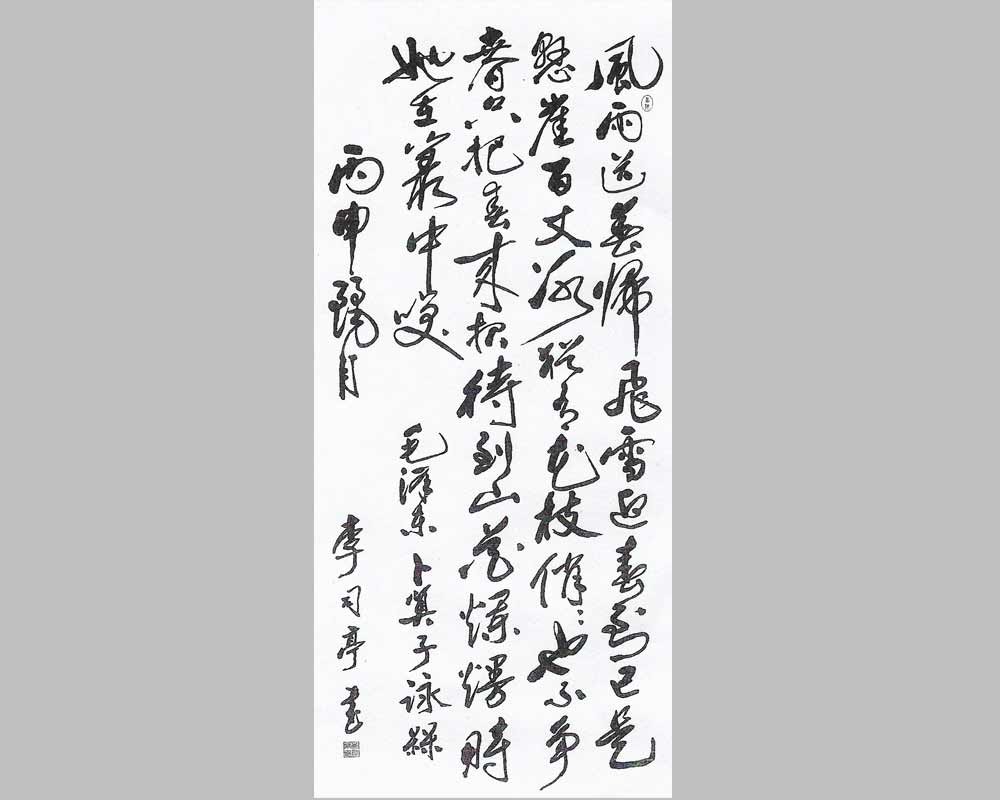 風雨送春歸飛雪迎春到已是
懸崖百丈冰猶有花枝俏〻也不争
春只把春来報待到山花爛熳時
她在叢中咲
毛泽东卜算子詠楳
丙申月
李司亭書